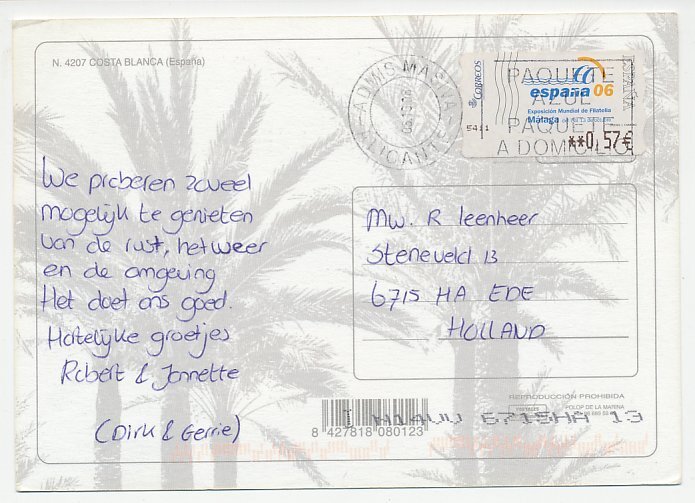 N. 4207 COSTA BLANCA (España)
ADMIS MASIVA
ALICANTE
CORREOS
5411
PAQUETE
AZUL
PAQUETE
A DOMICILIO
españa 06
Exposición Mundial de Filatelia
Málaga
ESPAÑA
**0,57€
We proberen zoveel
mogelijk te genieten
van de rust, het weer
en de omgeving
Het doet ons goed.
Hartelijke groetjes
Robert & Jannette
(Dirk & Gerrie)
Mw. R leenheer
Steneveld 13
6715 HA EDE
HOLLAND
REPRODUCCIÓN PROHIBIDA
POLOP DE LA MARINA
6715HA 13
8 427818 080123